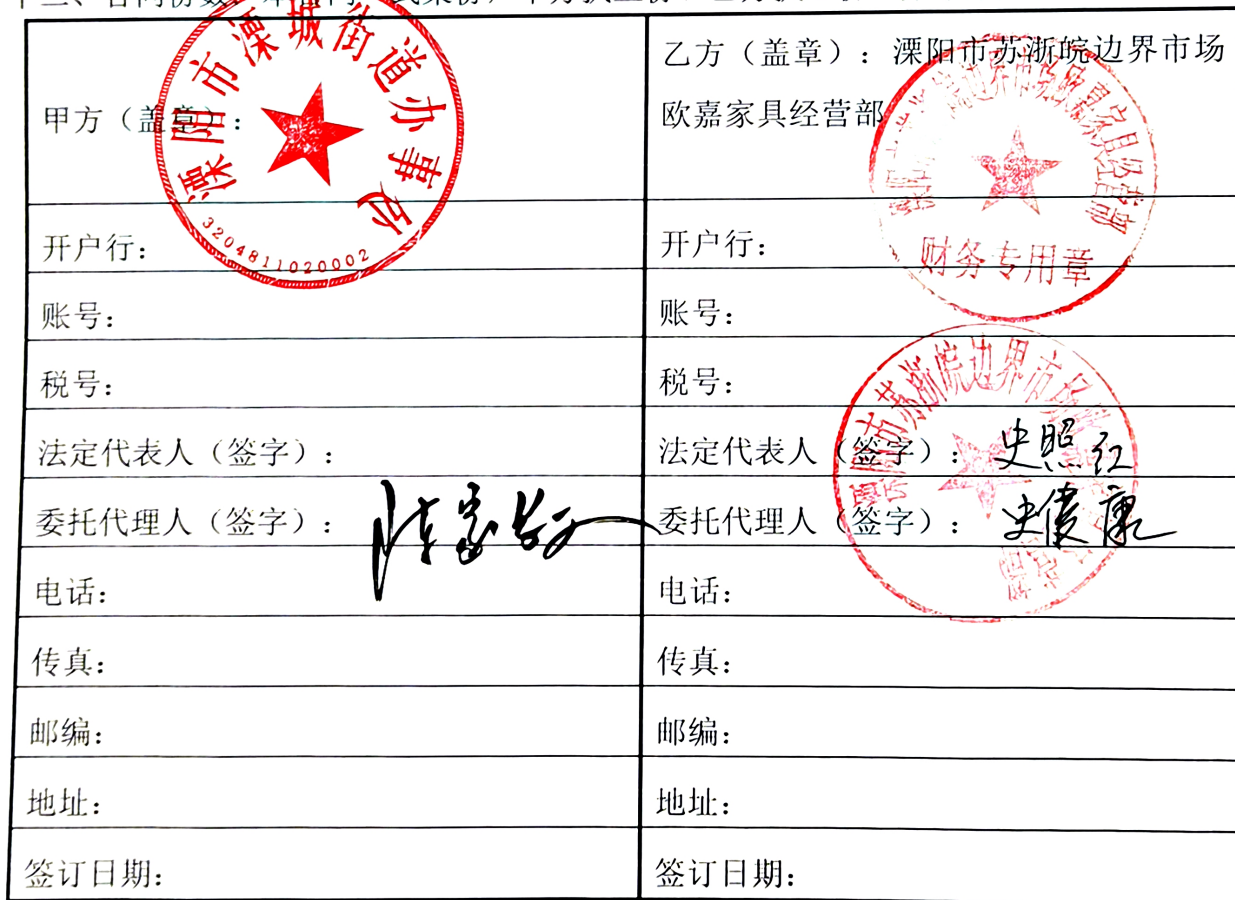 甲方（盖章）：
溧阳市溧城街道办事处
3204811020002
乙方（盖章）：溧阳市苏浙皖边界市场
欧嘉家具经营部
财务专用章
开户行：
开户行：
账号：
账号：
税号：
税号：
法定代表人（签字）：
法定代表人（签字）：史照红
委托代理人（签字）：
委托代理人（签字）：史俊康
电话：
电话：
传真：
传真：
邮编：
邮编：
地址：
地址：
签订日期：
签订日期：